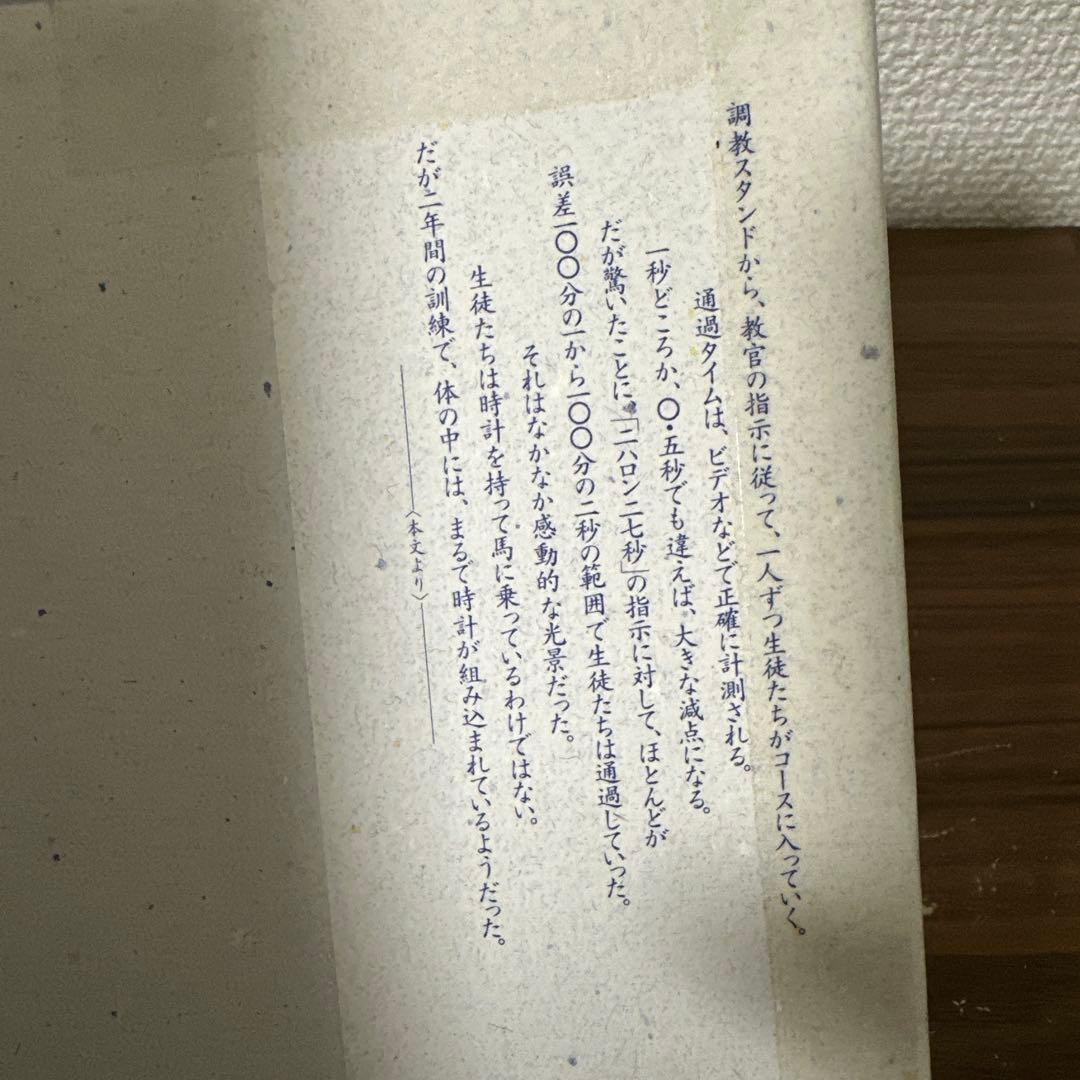 調教スタンドから、教官の指示に従って、一人ずつ生徒たちがコースに入っていく。
通過タイムは、ビデオなどで正確に計測される。
一秒どころか、〇・五秒でも違えば、大きな減点になる。
だが驚いたことに「二ハロン二七秒」の指示に対して、ほとんどが
誤差一〇〇分の一から一〇〇分の二秒の範囲で生徒たちは通過していった。
それはなかなか感動的な光景だった。
生徒たちは時計を持って馬に乗っているわけではない。
だが二年間の訓練で、体の中には、まるで時計が組み込まれているようだった。
〈本文より〉